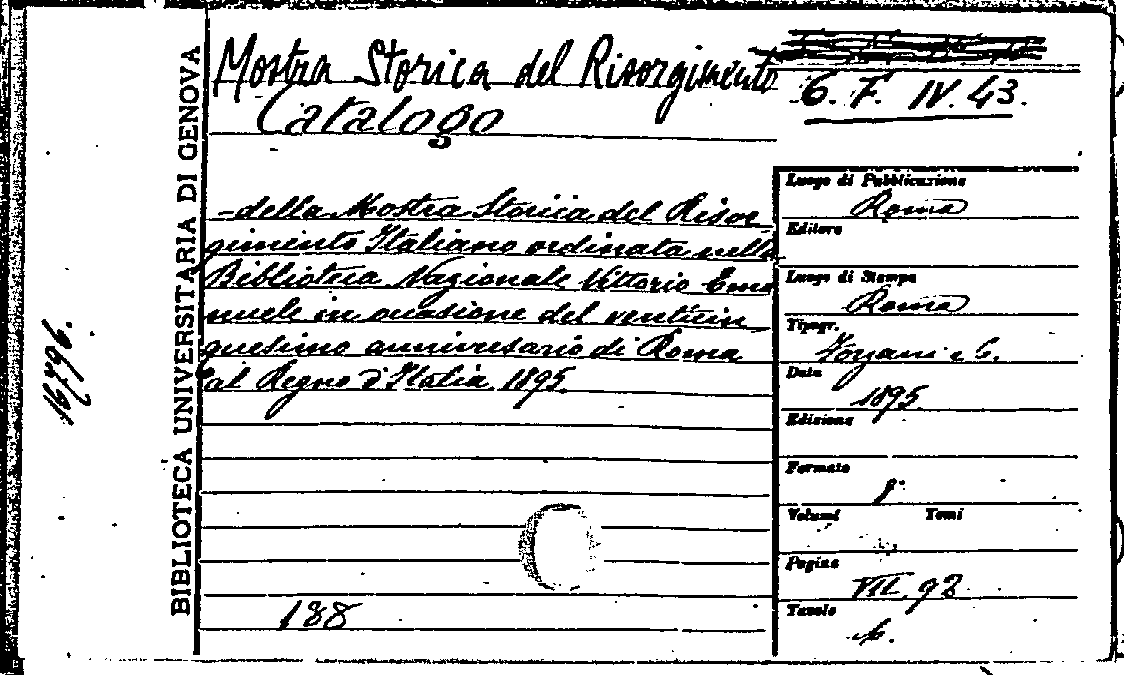 BIBLIOTECA UNIVERSITARIA DI GENOVA
Mostra Storica del Risorgimento
Catalogo
6. F. IV. 43.
- della Mostra Storica del Risor
gimento Italiano ordinata nella
Biblioteca Nazionale Vittorio Ema
nuele in occasione del venticin
quesimo anniversario di Roma
al Regno d'Italia, 1895
188
Luogo di Pubblicazione
Roma
Editore
Luogo di Stampa
Roma
Tipogr.
Forzani e C.
Data
1895
Edizione
Formato
8°
Volumi Tomi
Pagine
VII, 92
Tavole